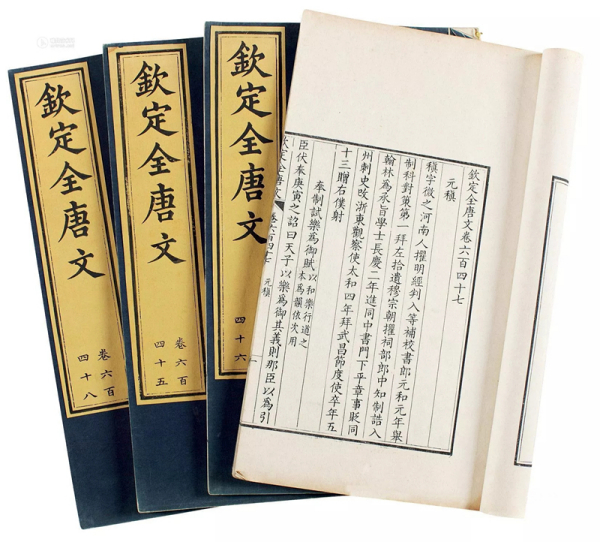 欽定全唐文卷六百四十七
元稹
稹字微之河南人擢明經判入等補校書郎元和元年舉
制科對策第一拜左拾遺穆宗朝擢祠部郎中知制誥入
翰林為承旨學士長慶二年進同中書門下平章事貶同
州刺史改浙東觀察使太和四年拜武昌節度使卒年五
十三贈右僕射
奉制試樂為御賦
以和樂行道之
本為韻依次用
臣伏奉庚寅之詔曰天子以樂為御其義則那臣以為引
欽定全唐文
卷六百四十七
元稹
欽定全唐文
四十六
欽定全唐文
卷六百
四十五
欽定全唐文
卷六百
四十八